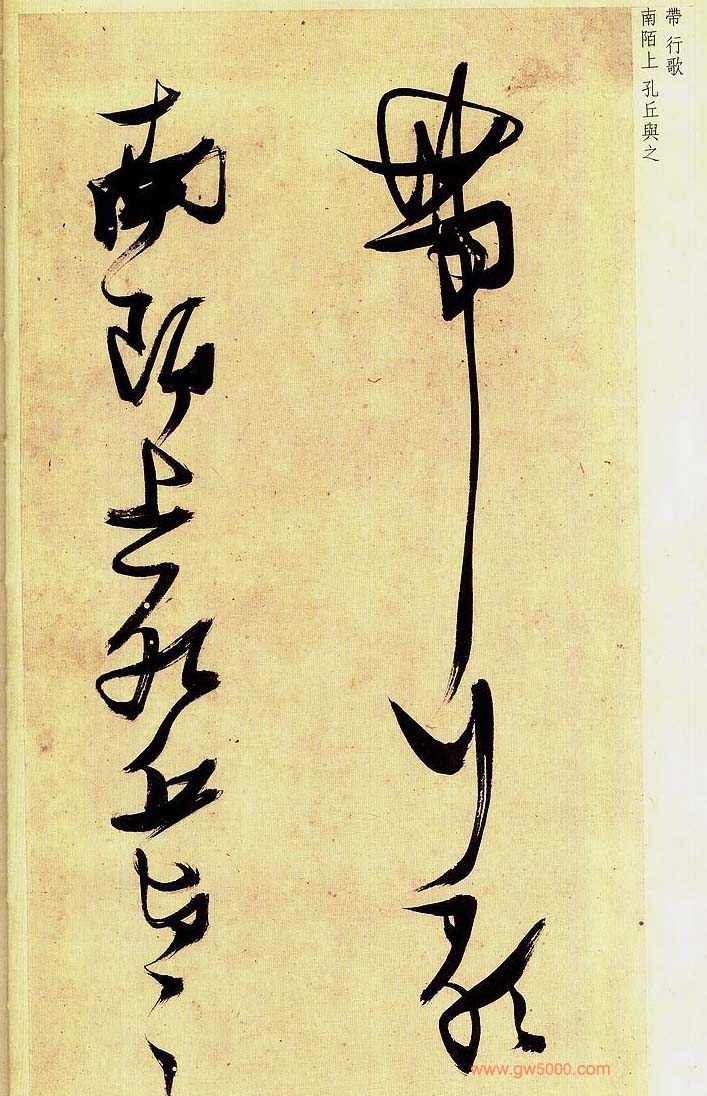 帶 行歌
南陌上 孔丘與之
帶行歌
南陌上孔丘與之
www.gw5000.com